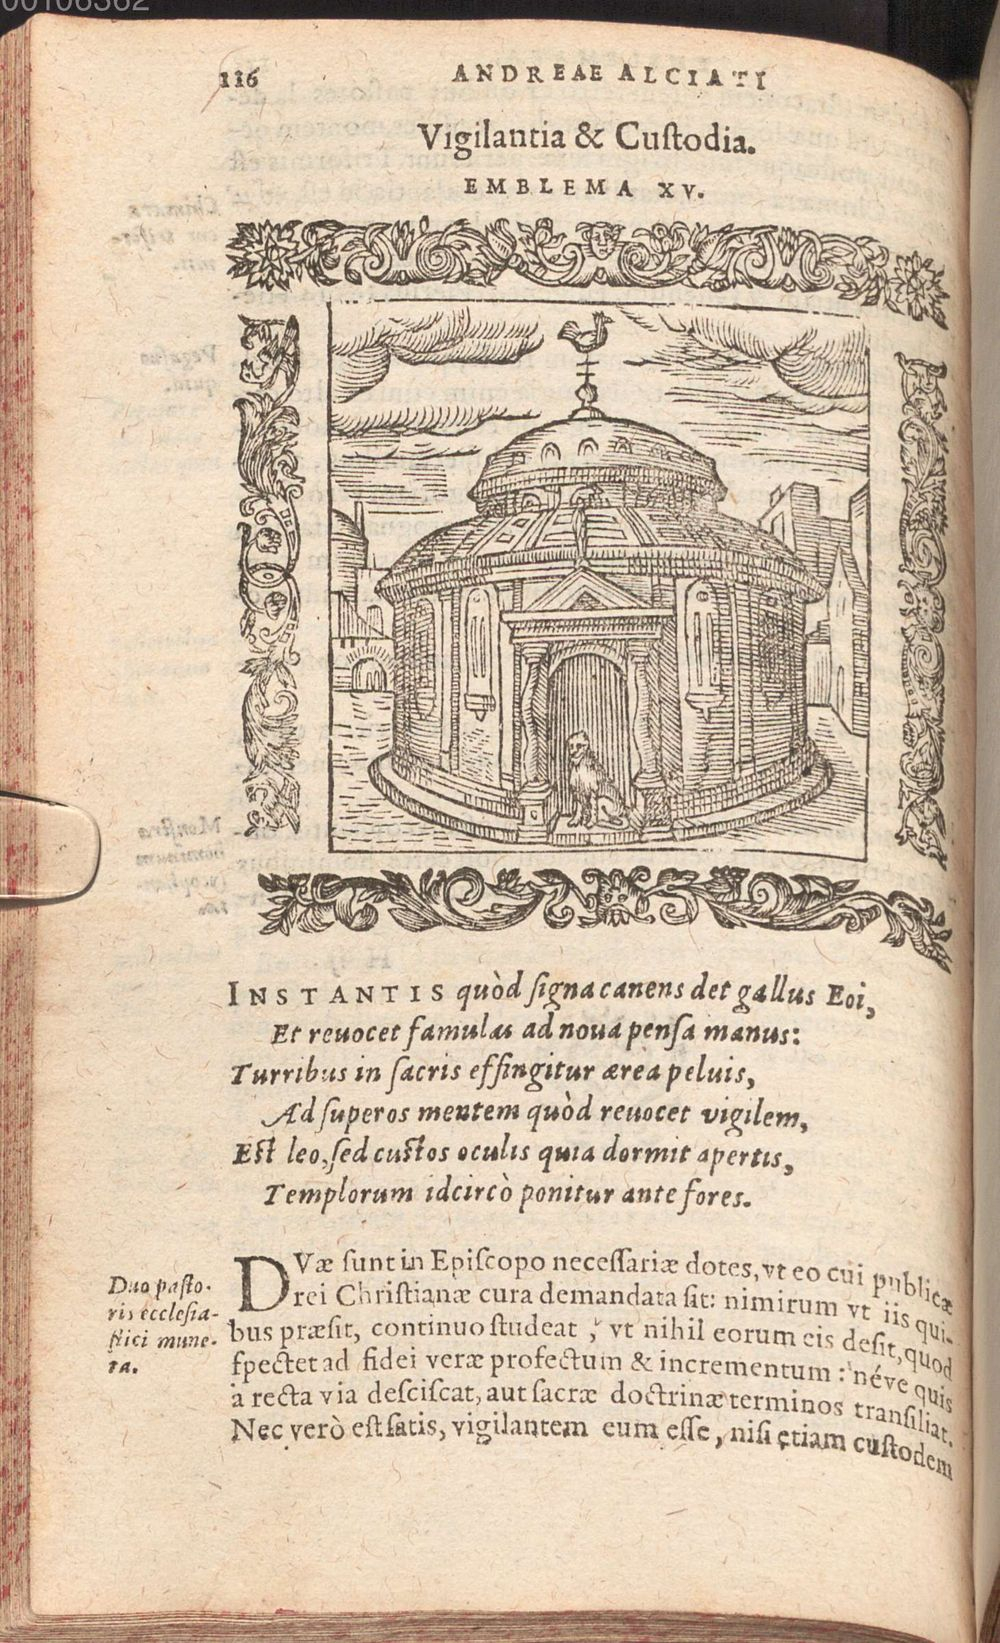 00106362
116 ANDREAE ALCIATI
Vigilantia & Cuſtodia.
EMBLEMA XV.
INSTANTIS quòd ſigna canens det gallus Eoi,
Et reuocet famulas ad noua penſa manus:
Turribus in ſacris effingitur ærea peluis,
Ad ſuperos mentem quòd reuocet vigilem,
Eſt leo, ſed cuſtos oculis quia dormit apertis,
Templorum idcircò ponitur ante fores.
Duo paſto-
ris eccleſia-
ſtici mune-
ra.
DVæ ſunt in Epiſcopo neceſſariæ dotes, vt eo cui publicæ
rei Chriſtianæ cura demandata ſit: nimirum vt iis qui-
bus præſit, continuo ſtudeat, vt nihil eorum eis deſit, quod
ſpectet ad fidei veræ profectum & incrementum: néve quis
a recta via deſciſcat, aut ſacræ doctrinæ terminos tranſiliat.
Nec verò eſt ſatis, vigilantem eum eſſe, niſi etiam cuſtodem